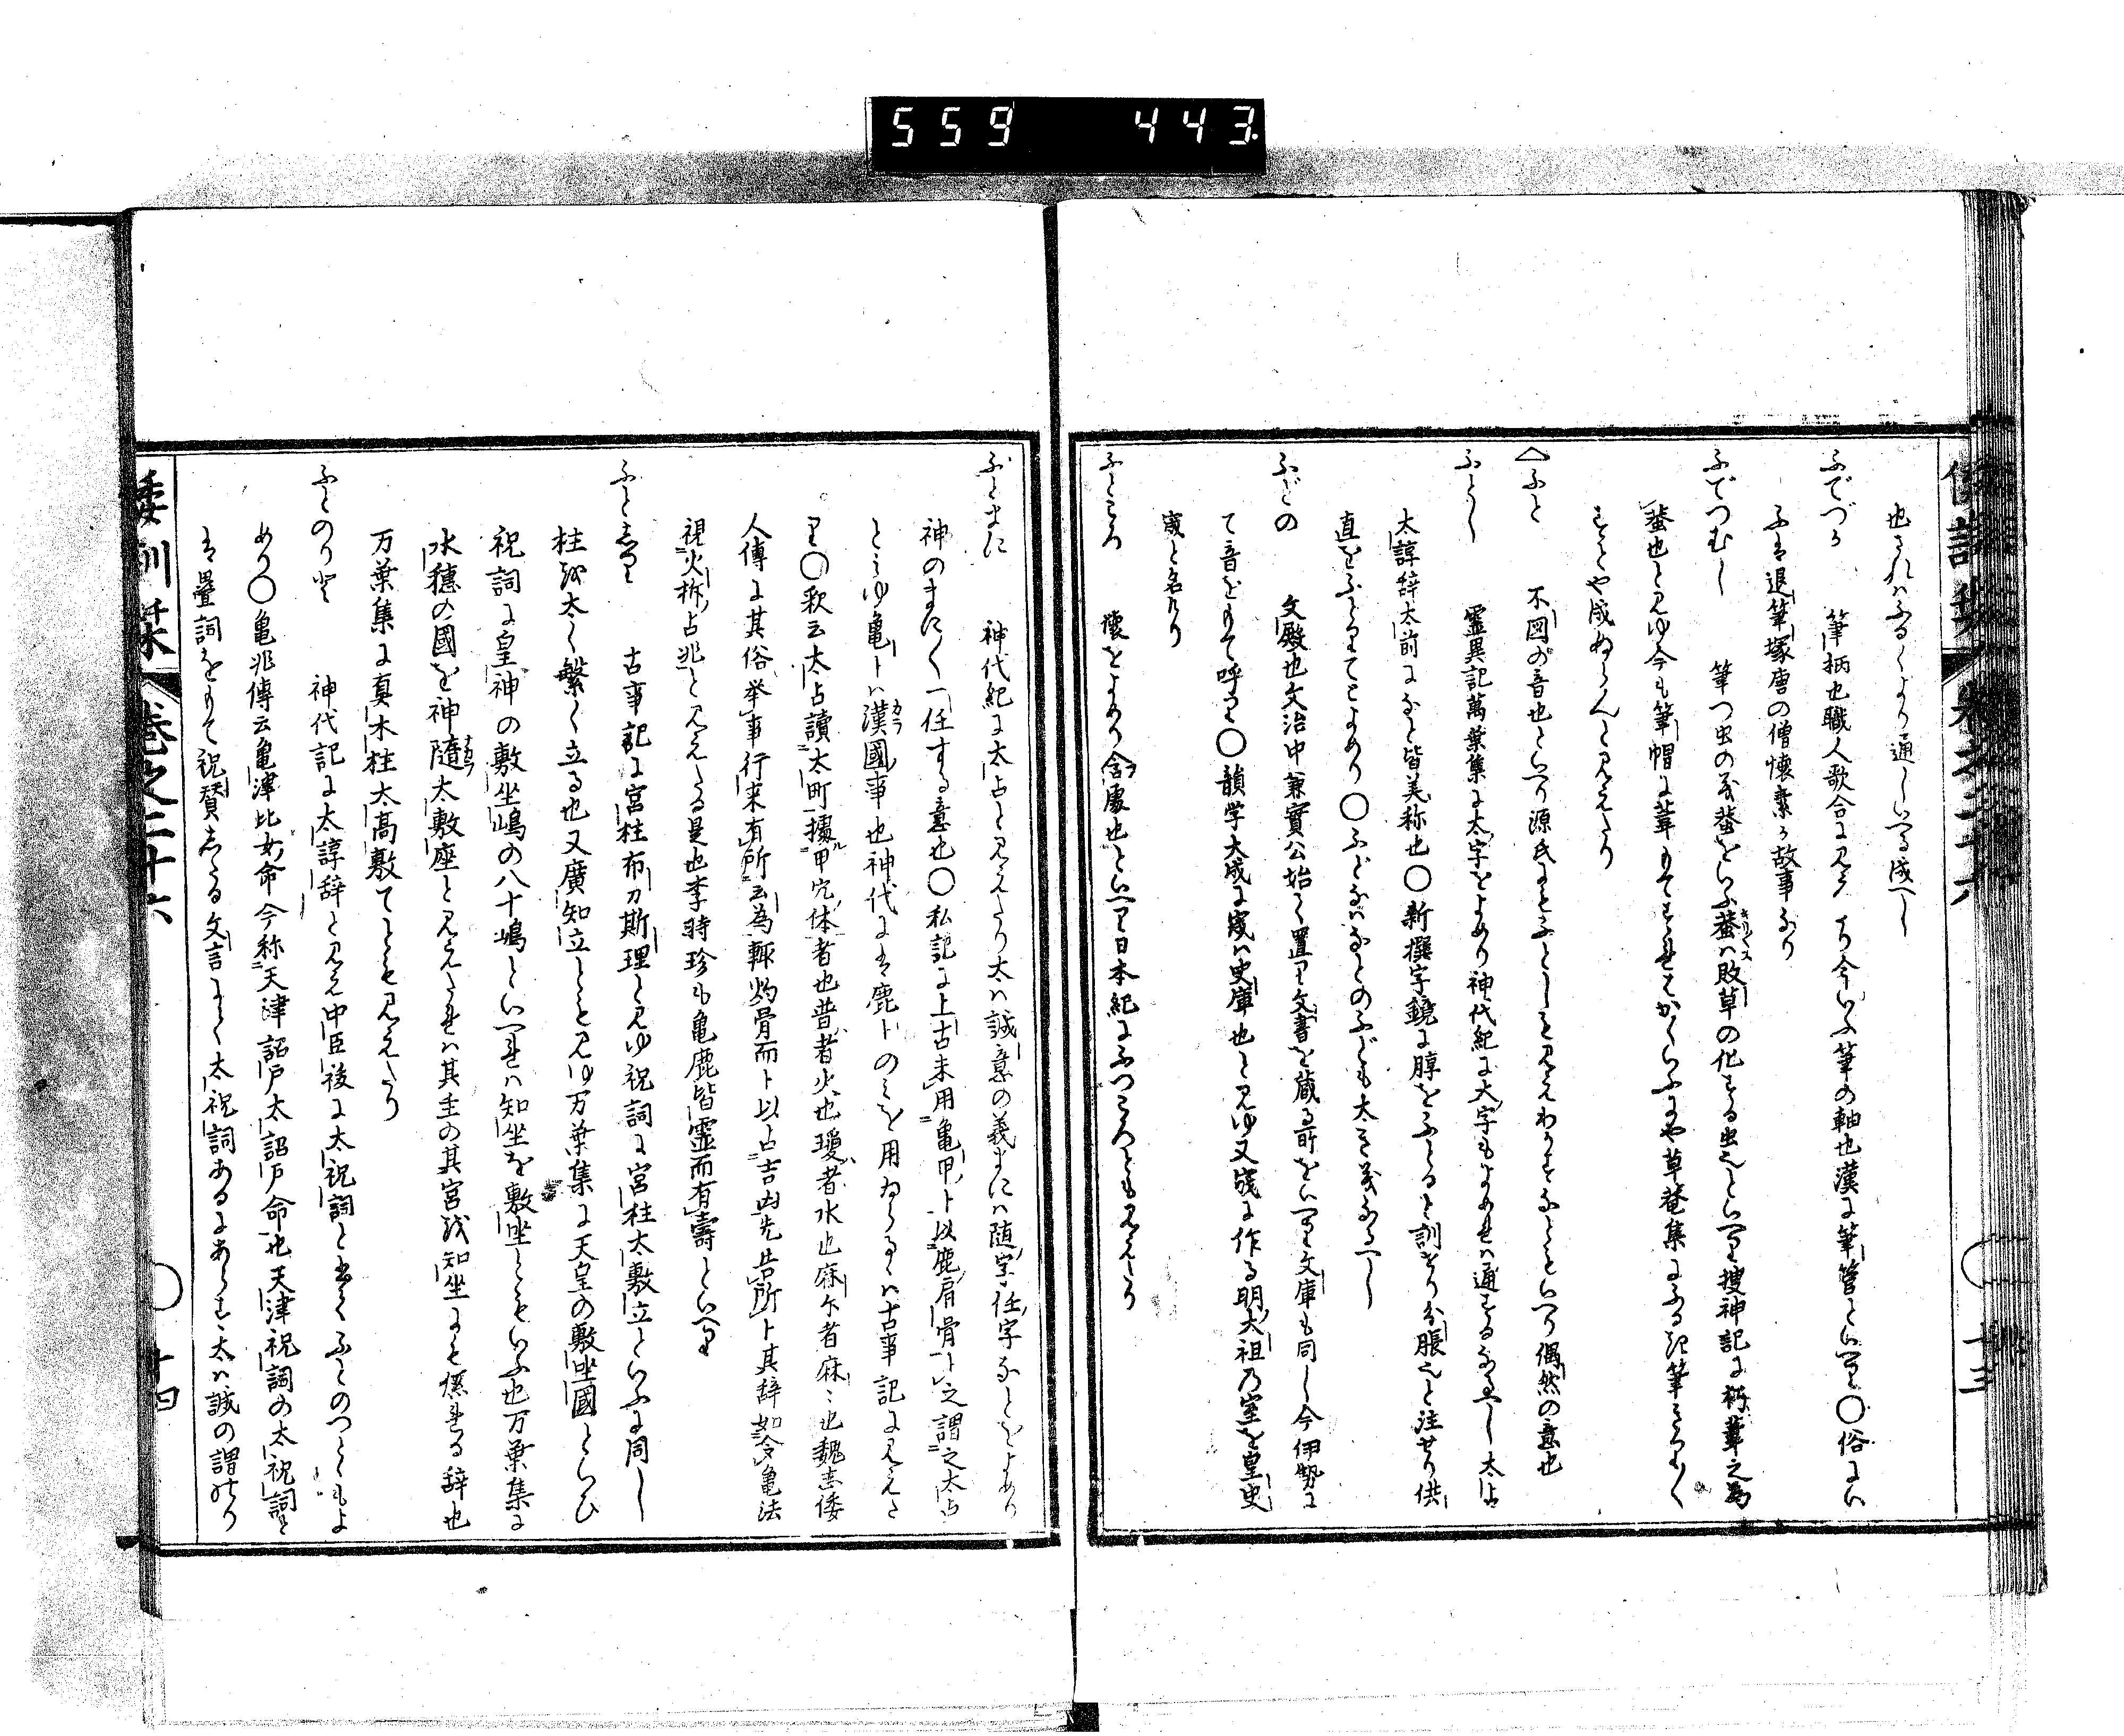 559 443
也されハふるくより通しいへる成へし
ふでづか 筆柄也職人歌合に見ゆ 今いふ筆の軸也漢に筆管といへり〇俗にい
ふは退筆塚唐の僧懐素か故事なり
ふでつむし 筆つ虫の義蛬をいふ蛬ハ敗草の化する虫也といへり捜神記に朽葦之為
蛬也と見ゆ今も筆帽に葦もてすれはかくいふにや草菴集にふる筆
すとや成ぬらんと見えたり
ふと 不図の音也といへり源氏にもふとしも見えわかすなともいへり偶然の意也
ふとし 霊異記萬葉集に太字をよめり神代紀に大字もよめれハ通するなるへし太占
太諄辞太前になと皆美称也〇新撰字鏡に脝をふとると訓せり脹也と注せり供
直をふとまてとよめり〇ふどなハなとのふども太き義なるへし
ふどの 文殿也文治中兼實公始て置り文書を蔵る所をいへり文庫も同し今伊勢に
て音をもて呼り〇韻学大成に宬ハ史庫也と見ゆ又宬に作る明太祖乃室を皇史
宬と名けり
ふところ 懐をよめり含處也といへり日本紀にふつころとも見えたり
ふとまに 神代紀に太占と見えたり太ハ誠意の義まにハ随字任字なとをよめり
神のまに〱一任する意也〇私記に上古未用亀甲卜以鹿肩骨卜之謂之太占
とみゆ亀卜ハ漢國事也神代には鹿卜のみを用ゐらるハ古事記に見えた
り〇釈云太占讀太町據甲穴体者也昔者火也璦者水也麻尓者麻〻也魏志倭
人傳に其俗挙事行来有所云為輙灼骨而卜以占吉凶先告所卜其辞如令亀法
視火拆占兆と見えたる是也李時珍も亀鹿皆霊而有壽といへり
ふとしり 古事記に宮柱布刀斯理と見ゆ祝詞に宮柱太敷立といふに同し
柱は太く繁く立る也又廣知立とも見ゆ万葉集に天皇の敷坐國とらひ
祝詞に皇神の敷坐嶋の八十嶋といへれハ知坐を敷坐ともいふ也万葉集に
水穂の國を神随太敷座と見えたれハ其主の其宮を知坐にも係れる辞也
万葉集に真木柱太高敷てとも見えたり
ふとのりと 神代記に太諄辞と見え中臣祓に太祝詞と書くふとのつとともよ
めり〇亀兆傳云亀津比女命今称天津詔戸太詔戸命也天津祝詞の太祝詞と
は疊詞をもて祝賛したる文言にて太祝詞あるにあらす太ハ誠の謂なり
倭訓栞 巻之二十六 十四
倭訓栞 巻之二十六 十三